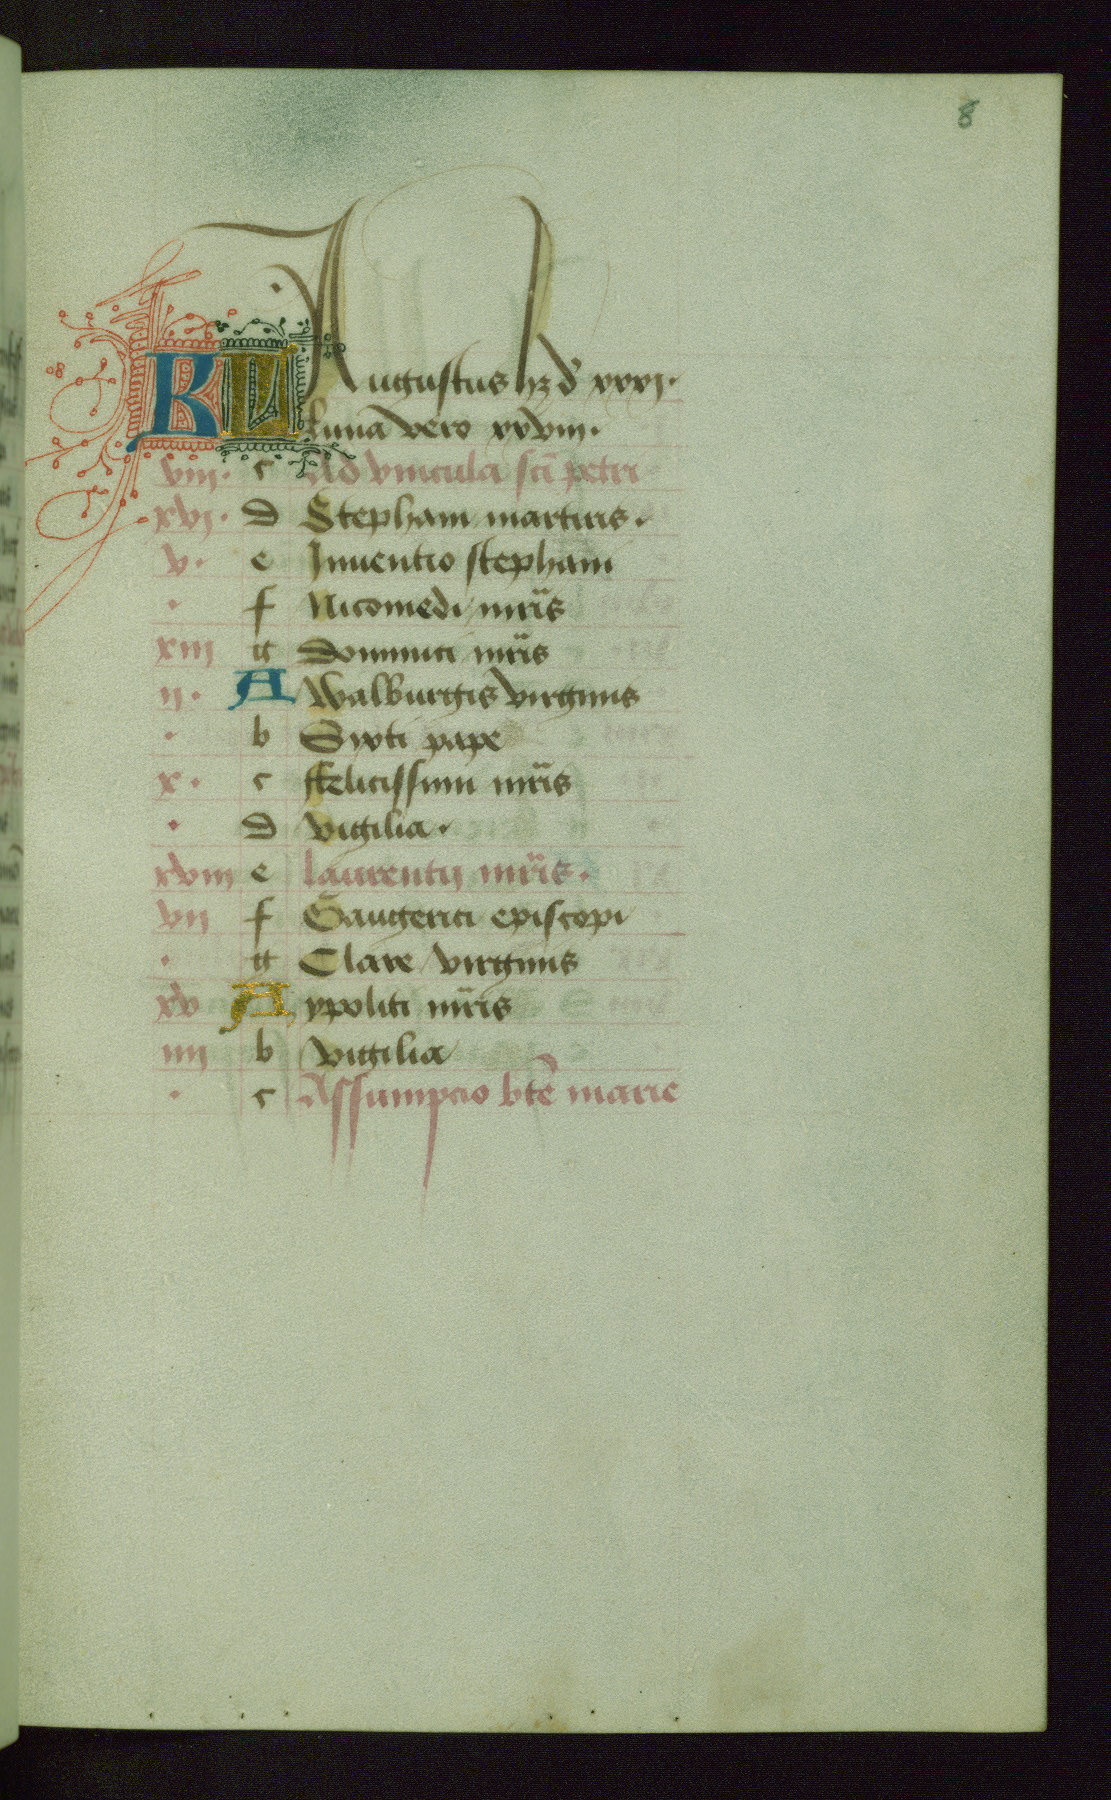 8
KL Augustus hꝫ d̄ xxxi.
Luna vero xxviiii.
viii. c Ad vincula sci̅ petri
xvi. d Stephani martiris.
v. e Inuentio stephani
. f Nicomedi mr̅is
xiii g Dominici mr̅is
ii. A Walburgis virginis
. b Sixti pape
x. c ffelicissimi mr̅is
. d vigilia.
xviii e laurentij mr̅is.
vii f Gaugerici episcopi
. g Clare virginis
xv A ypoliti mr̅is
iiii b vigilia
. c Assumpcio bt̅e marie